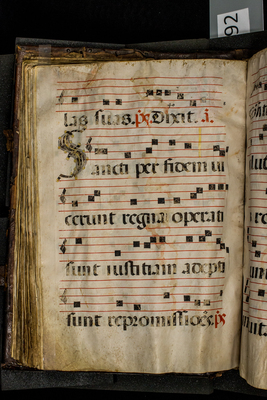 92
las suas. ps Dixit. i.
Sancti per fidem ui
cerunt regna operati
sunt iustitiam adepti
sunt repromissiões ps